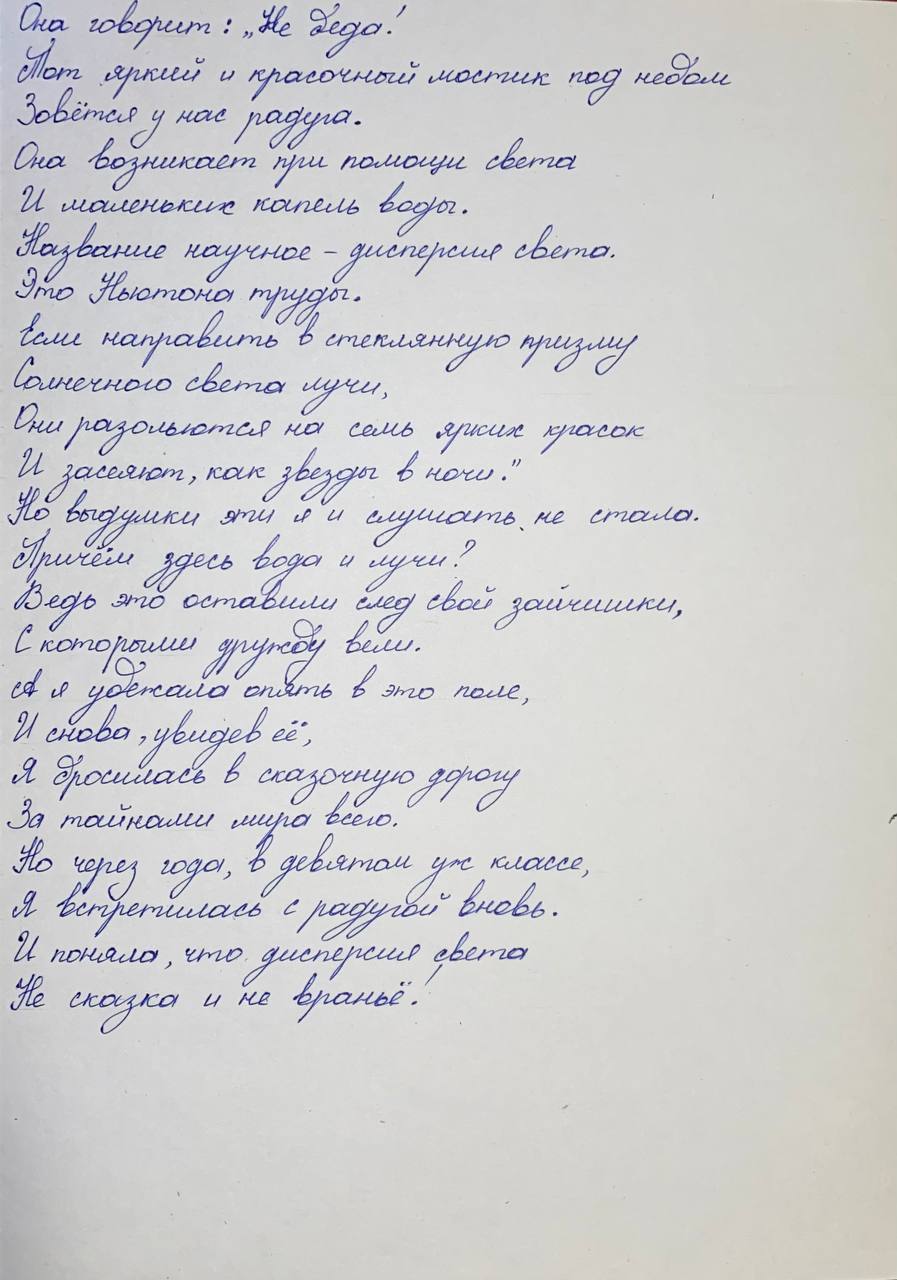 Она говорит: „Не беда!
Тот яркий и красочный мостик под небом
Зовётся у нас радуга.
Она возникает при помощи света
И маленьких капель воды.
Название научное – дисперсия света.
Это Ньютона труды.
Если направить в стеклянную призму
Солнечного света лучи,
Они разольются на семь ярких красок
И засеяют, как звезды в ночи."
Но выдумки эти я и слушать не стала.
Причём здесь вода и лучи?
Ведь это оставили след свой зайчишки,
С которыми дружбу вели.
А я убежала опять в это поле,
И снова, увидев её,
Я бросилась в сказочную дорогу
За тайнами мира всего.
Но через года, в девятом уж классе,
Я встретилась с радугой вновь.
И поняла, что дисперсия света
Не сказка и не враньё!